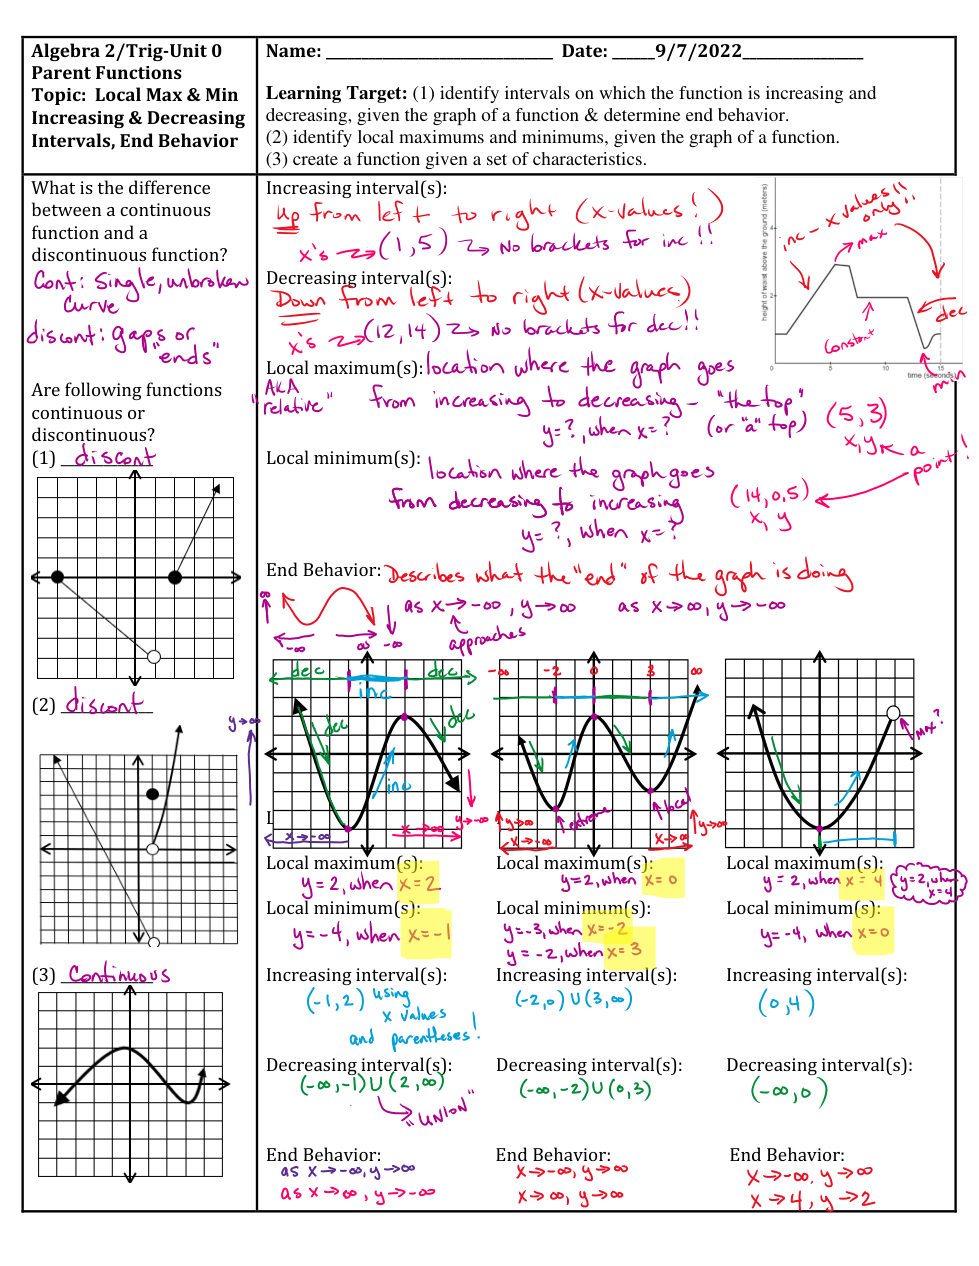 Algebra 2/Trig-Unit 0
Parent Functions
Topic: Local Max & Min
Increasing & Decreasing
Intervals, End Behavior
Name: ______________________________ Date: ______9/7/2022________________
Learning Target: (1) identify intervals on which the function is increasing and
decreasing, given the graph of a function & determine end behavior.
(2) identify local maximums and minimums, given the graph of a function.
(3) create a function given a set of characteristics.
What is the difference
between a continuous
function and a
discontinuous function?
Cont: Single, unbroken
Curve
discont: gaps or
"ends"
Are following functions
continuous or
discontinuous?
(1) discont
(2) discont
(3) Continuous
Increasing interval(s):
Up from left to right (x-values!)
x's → (1,5) → No brackets for inc!!
Decreasing interval(s):
Down from left to right (x-values)
x's → (12,14) → No brackets for dec!!
Local maximum(s): location where the graph goes
"AKA
relative"
from increasing to decreasing - "the top"
y=?, when x=? (or "a" top)
(5,3)
x,y ← a
point!
Local minimum(s): location where the graph goes
from decreasing to increasing
y=?, when x=?
(14,0.5)
x, y
End Behavior: Describes what the "end" of the graph is doing
as x→-∞, y→∞ as x→∞, y→-∞
approaches
∞
-∞
∞ -∞
height of waist above the ground (meters)
inc - x values!!
only!!
max
Constant
dec
min
4
2
0 5 10 15
time (seconds)
dec inc dec
dec
dec
inc
y→∞
x→-∞
x→∞
y→-∞
L
-∞ -2 0 3 ∞
extreme
local
y→∞
x→-∞
x→∞
y→∞
Max?
Local maximum(s):
y=2, when x=2
Local minimum(s):
y=-4, when x=-1
Increasing interval(s):
(-1,2) using
x values
and parentheses!
Decreasing interval(s):
(-∞,-1)∪(2,∞)
"UNION"
End Behavior:
as x→-∞, y→∞
as x→∞, y→-∞
Local maximum(s):
y=2, when x=0
Local minimum(s):
y=-3, when x=-2
y=-2, when x=3
Increasing interval(s):
(-2,0)∪(3,∞)
Decreasing interval(s):
(-∞,-2)∪(0,3)
End Behavior:
x→-∞, y→∞
x→∞, y→∞
Local maximum(s):
y=2, when x=4
y=2, when
x=4
Local minimum(s):
y=-4, when x=0
Increasing interval(s):
(0,4)
Decreasing interval(s):
(-∞,0)
End Behavior:
x→-∞, y→∞
x→4, y→2